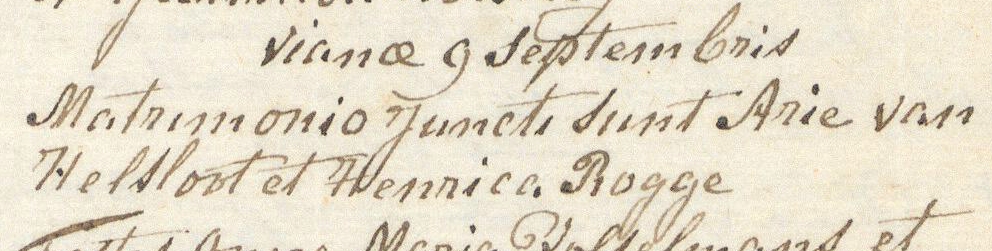 Vianæ 9 Septembris
Matrimonio Juncti sunt Arie van
Helsloot et Henrica Rogge
Maria et